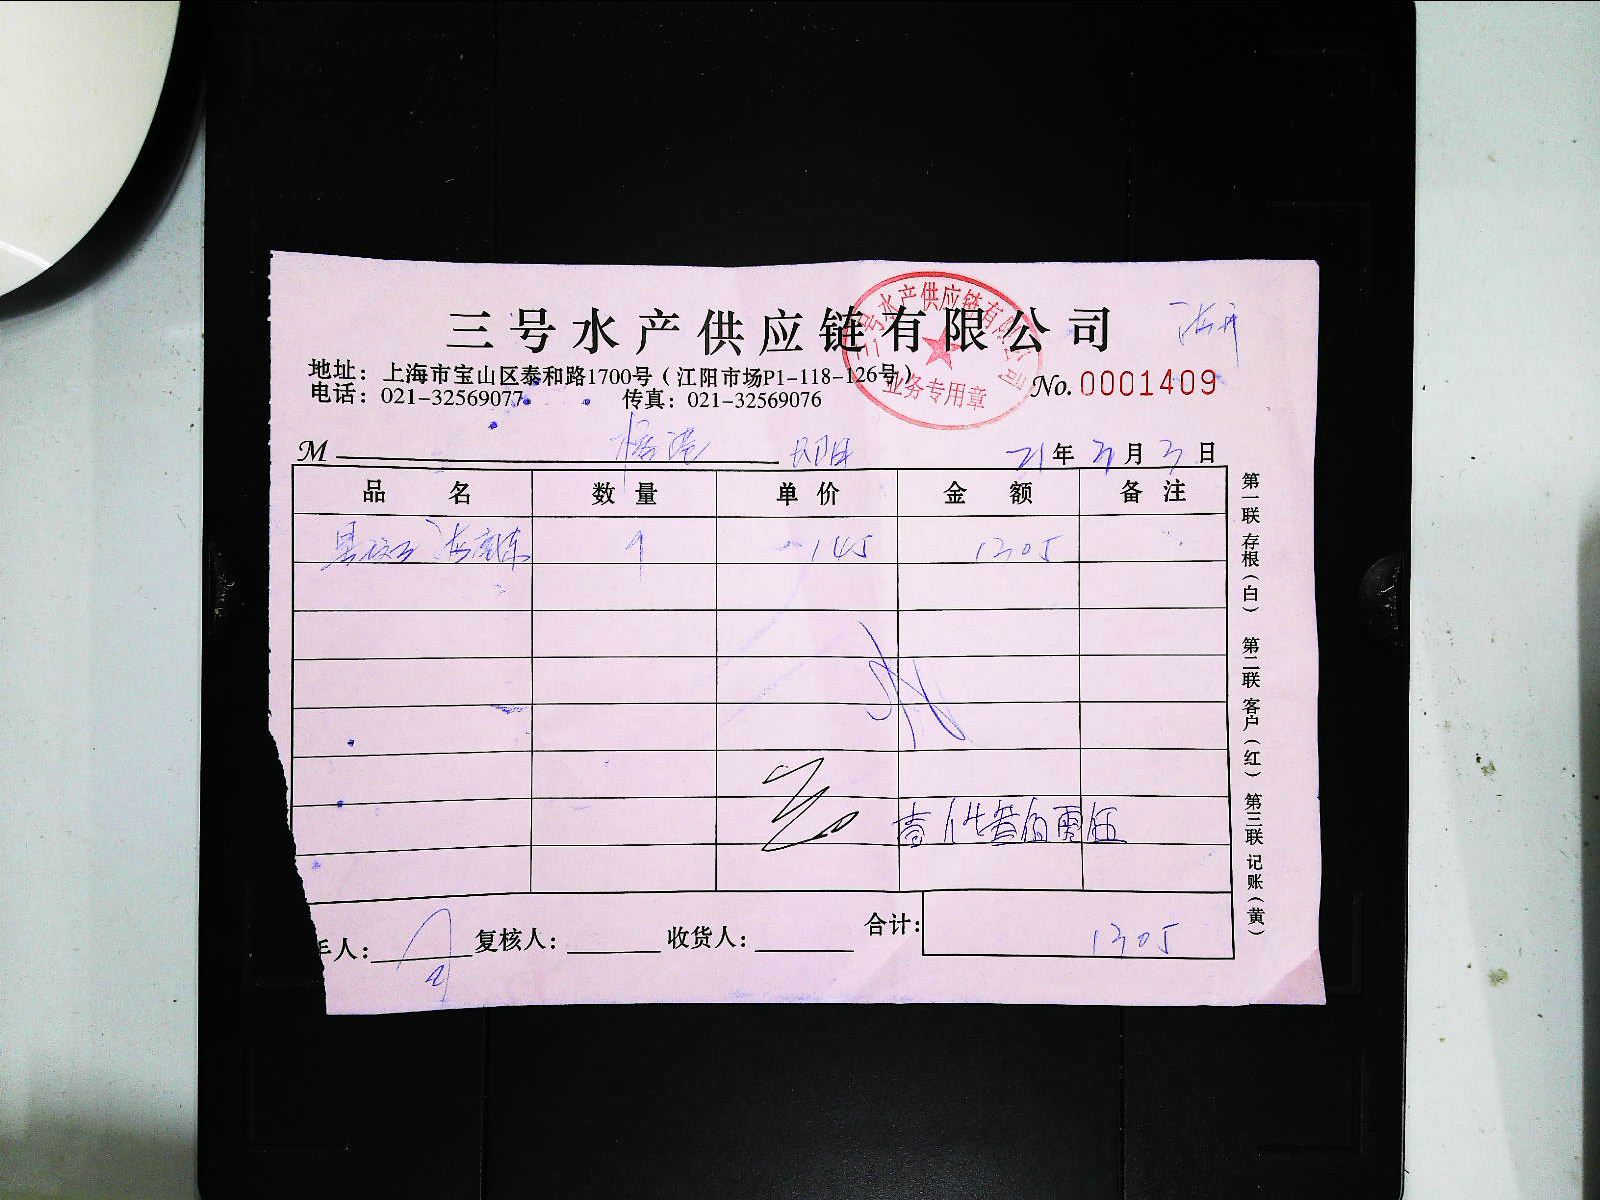 三号水产供应链有限公司
三号水产供应链有限公司
业务专用章
地址：上海市宝山区泰和路1700号（江阳市场P1-118-126号）
No. 0001409
电话：021-32569077 传真：021-32569076
M 21年 月 3日
品名 数量 单价 金额 备注
9 145 1305
壹仟叁佰零伍
年人： 复核人： 收货人： 合计： 1305
第一联 存根（白） 第二联 客户（红） 第三联 记账（黄）